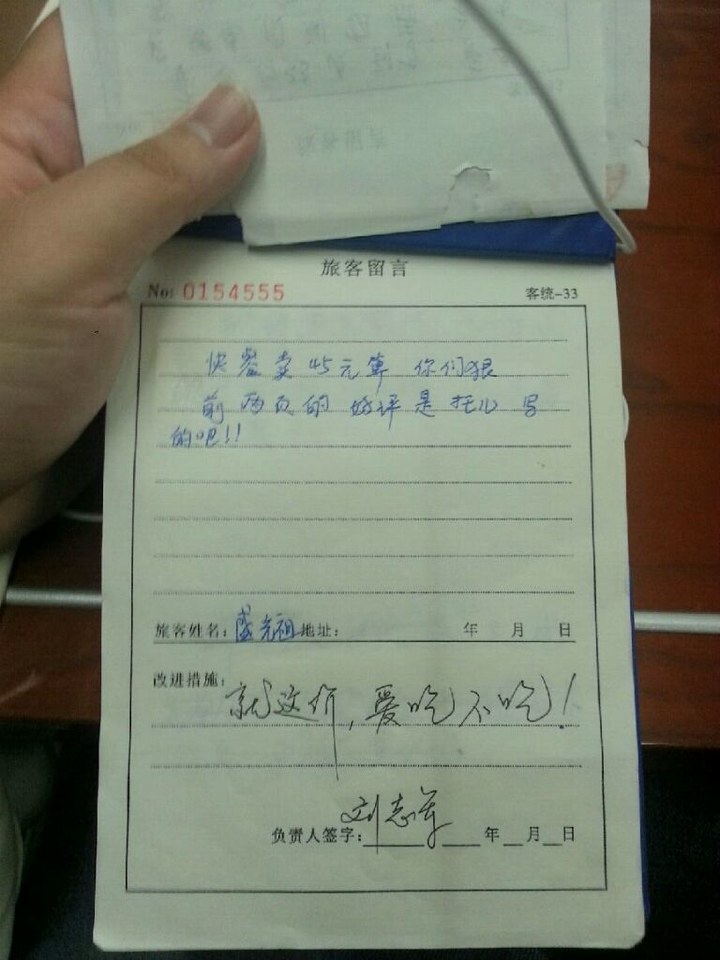 旅客留言
No: 0154555 客统-33
快餐卖45元算 你们狠
前两页的 好评是托儿 写
的吧!!
旅客姓名: 盛光祖 地址: 年 月 日
改进措施:
就这价,爱吃不吃!
刘志军
负责人签字: 年 月 日